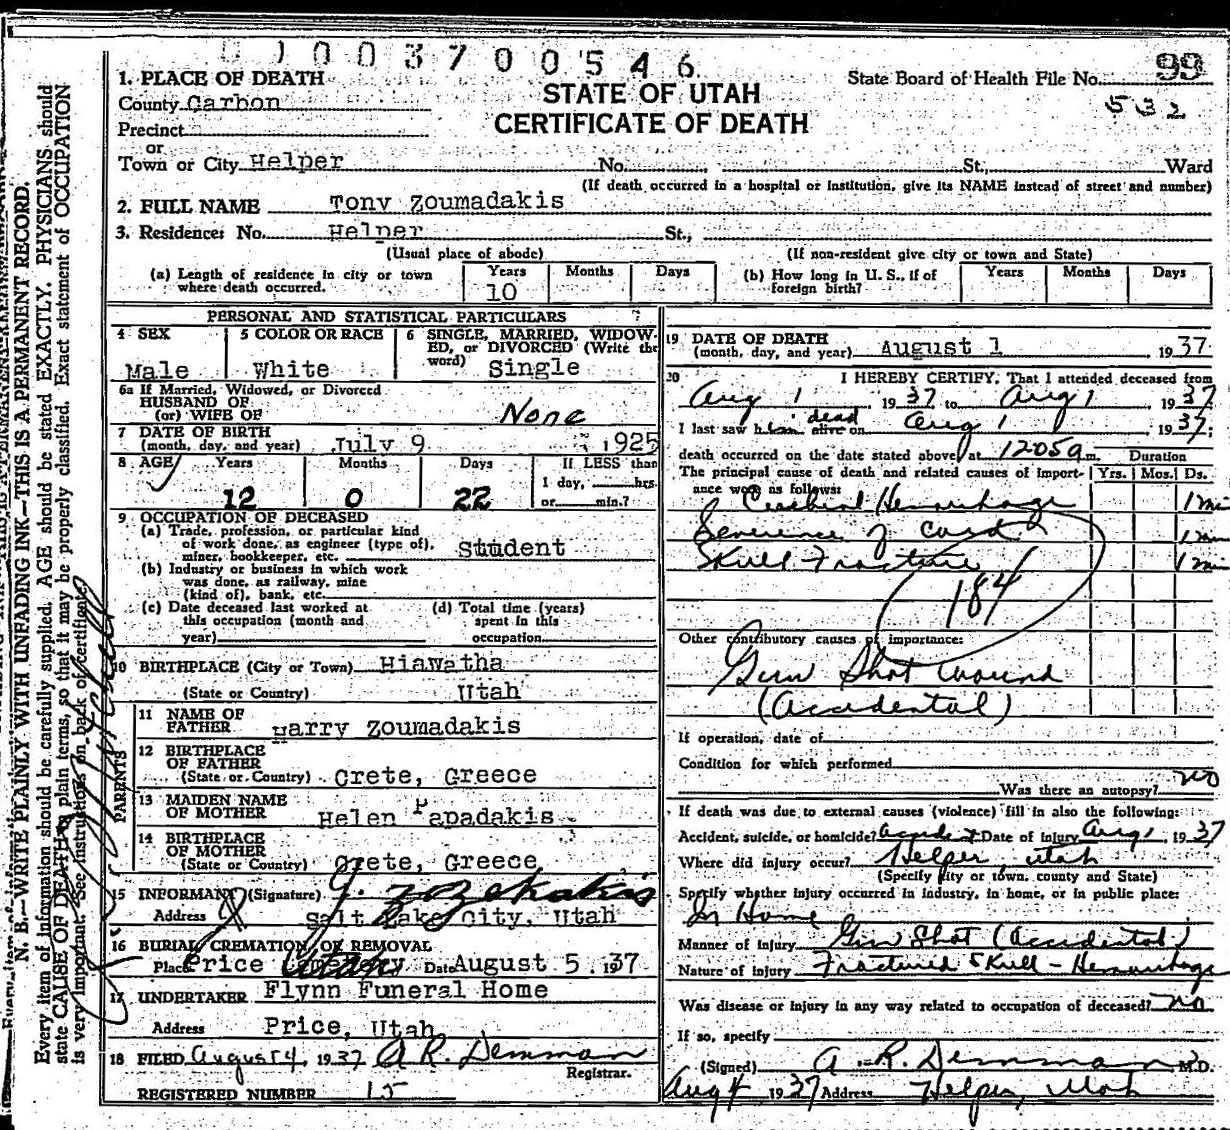 003700546
1. PLACE OF DEATH
STATE OF UTAH
CERTIFICATE OF DEATH
State Board of Health File No. 99
532
County Carbon
Precinct
or
Town or City Helper No. St., Ward
(If death occurred in a hospital or institution, give its NAME instead of street and number)
2. FULL NAME Tony Zoumadakis
3. Residence: No. Helper St.,
(Usual place of abode) (If non-resident give city or town and State)
(a) Length of residence in city or town where death occurred. Years 10 Months Days
(b) How long in U. S., if of foreign birth? Years Months Days
PERSONAL AND STATISTICAL PARTICULARS
4 SEX Male
5 COLOR OR RACE White
6 SINGLE, MARRIED, WIDOWED, or DIVORCED (Write the word) Single
6a If Married, Widowed, or Divorced
HUSBAND OF
(or) WIFE OF None
7 DATE OF BIRTH
(month, day, and year) July 9 1925
8 AGE Years 12 Months 0 Days 22 If LESS than
1 day, hrs.
or min.?
9 OCCUPATION OF DECEASED
(a) Trade, profession, or particular kind
of work done, as engineer (type of),
miner, bookkeeper, etc. Student
(b) Industry or business in which work
was done, as railway, mine
(kind of), bank, etc.
(c) Date deceased last worked at
this occupation (month and
year)
(d) Total time (years)
spent in this
occupation
10 BIRTHPLACE (City or Town) Hiawatha
(State or Country) Utah
PARENTS
11 NAME OF
FATHER Harry Zoumadakis
12 BIRTHPLACE
OF FATHER
(State or Country) Crete, Greece
13 MAIDEN NAME
OF MOTHER Helen Papadakis
14 BIRTHPLACE
OF MOTHER
(State or Country) Crete, Greece
15 INFORMANT (Signature)
Address Salt Lake City, Utah
16 BURIAL, CREMATION, OR REMOVAL
Place Price Utah Date August 5 1937
17 UNDERTAKER Flynn Funeral Home
Address Price, Utah
18 FILED August 4, 1937 A R. Demman
Registrar.
REGISTERED NUMBER 15
19 DATE OF DEATH
(month, day, and year) August 1 1937
20 I HEREBY CERTIFY, That I attended deceased from
Aug 1 1937 to Aug 1 1937
I last saw him dead alive on Aug 1 1937;
death occurred on the date stated above, at 1205a m. Duration
The principal cause of death and related causes of importance were as follows: Yrs. Mos. Ds.
Cerebral Hemorrhage 1 min
Severence of cord 1 min
Skull Fracture 1 min
184
Other contributory causes of importance:
Gun Shot wound
(Accidental)
If operation, date of
Condition for which performed
Was there an autopsy? no
If death was due to external causes (violence) fill in also the following:
Accident, suicide, or homicide? Accident Date of injury Aug 1 1937
Where did injury occur? Helper, Utah
(Specify city or town, county and State)
Specify whether injury occurred in industry, in home, or in public place:
In Home
Manner of injury Gun Shot (Accidental)
Nature of injury Fractured Skull - Hemorrhage
Was disease or injury in any way related to occupation of deceased? no
If so, specify
(Signed) A. R. Demman M.D.
Aug 4 1937 Address Helper, Utah
N. B.—WRITE PLAINLY WITH UNFADING INK—THIS IS A PERMANENT RECORD.
Every item of information should be carefully supplied. AGE should be stated EXACTLY. PHYSICIANS should
state CAUSE OF DEATH in plain terms, so that it may be properly classified. Exact statement of OCCUPATION
is very important. See instructions on back of certificate.